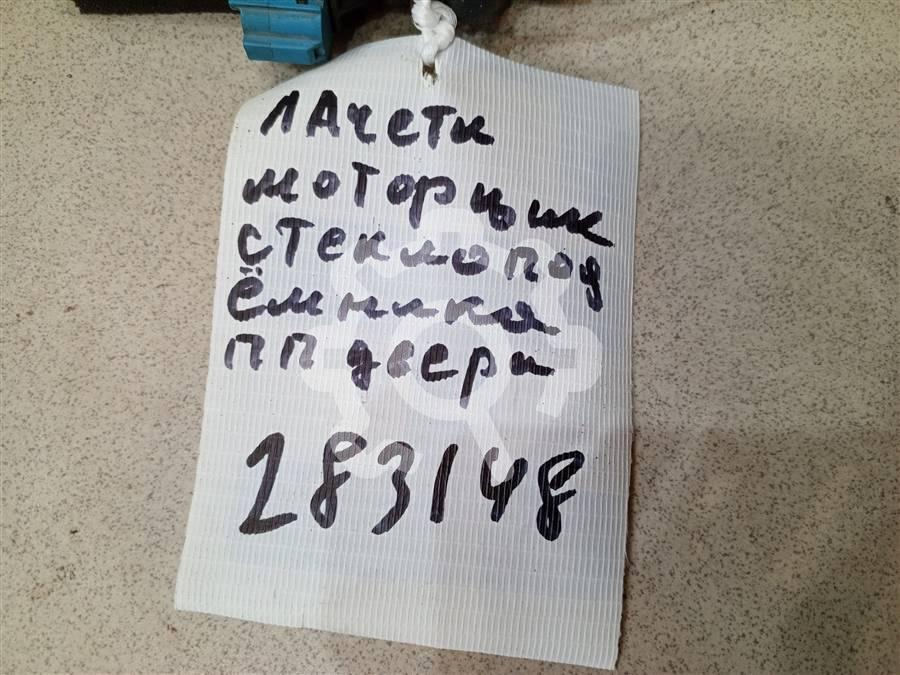 ЛАчетк
моторчик
стеклопод
ёмника
пп двери
283148